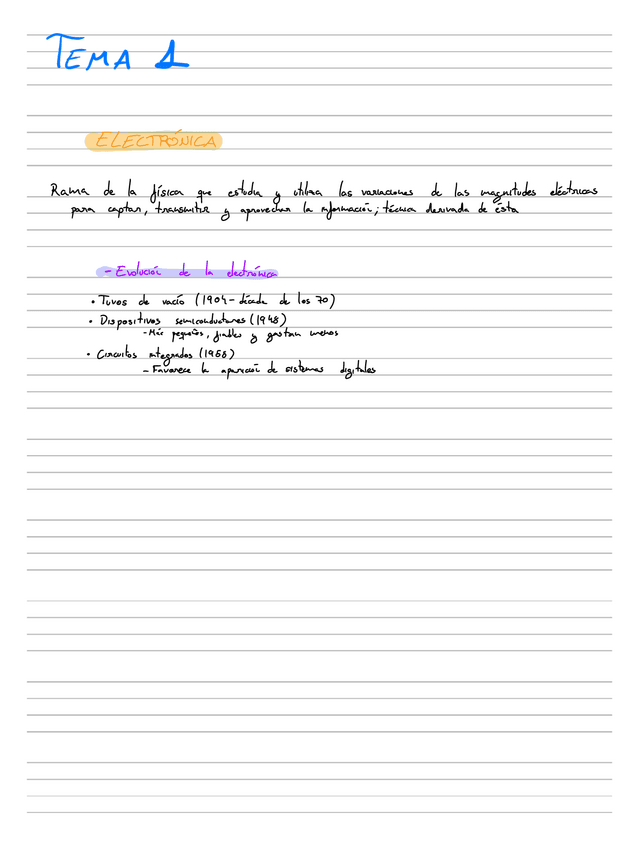 TEMA 1
ELECTRÓNICA
Rama de la física que estudia y utiliza las variaciones de las magnitudes eléctricas
para captar, transmitir y aprovechar la información; técnica derivada de ésta
- Evolución de la electrónica
• Tuvos de vacío (1904 - década de los 70)
• Dispositivos semiconductores (1948)
- Más pequeños, fiables y gastan menos
• Circuitos integrados (1958)
- Favorece la aparición de sistemas digitales